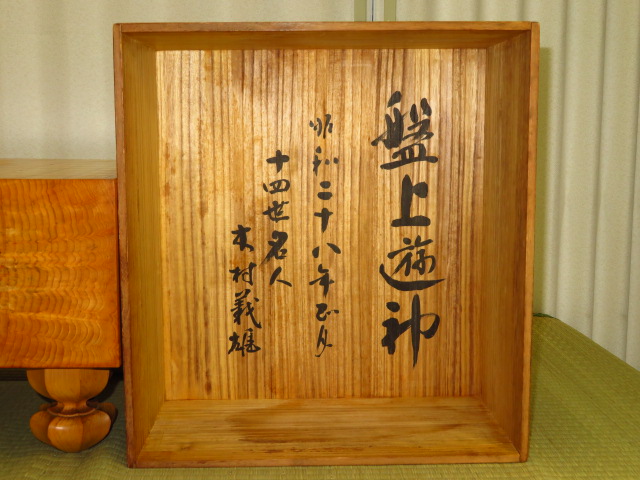 盤上遊神
昭和二十八年正月
十四世名人
木村義雄